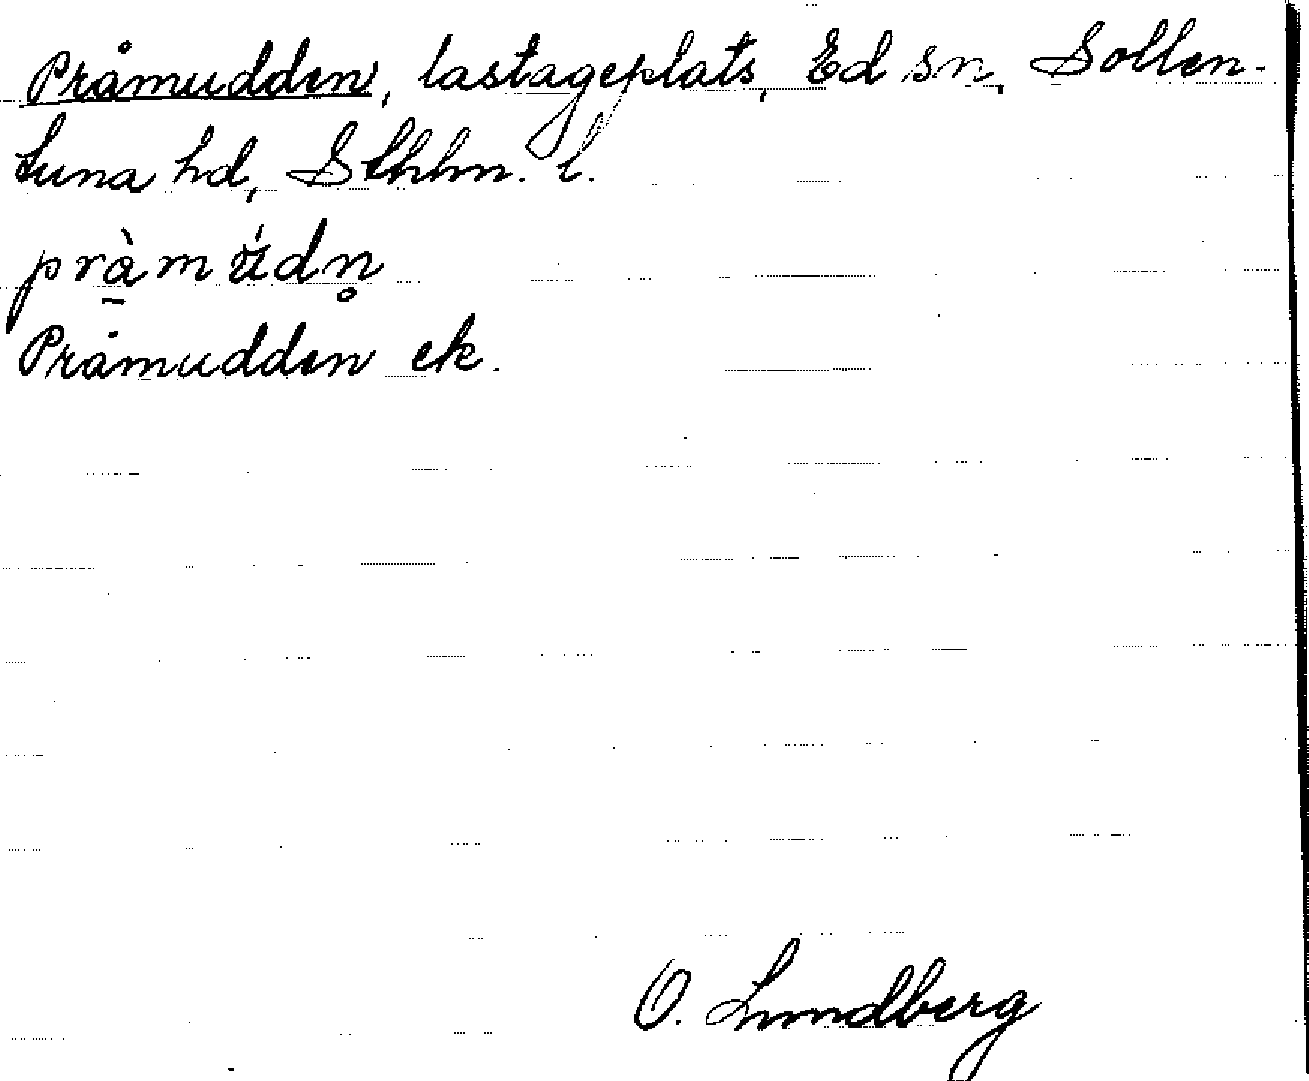 Pråmudden, lastageplats, Ed sn, Sollen-
tuna hd, Sthlm. l.
prà̱mú̆dn̥
Pråmudden ek.
O. Lundberg